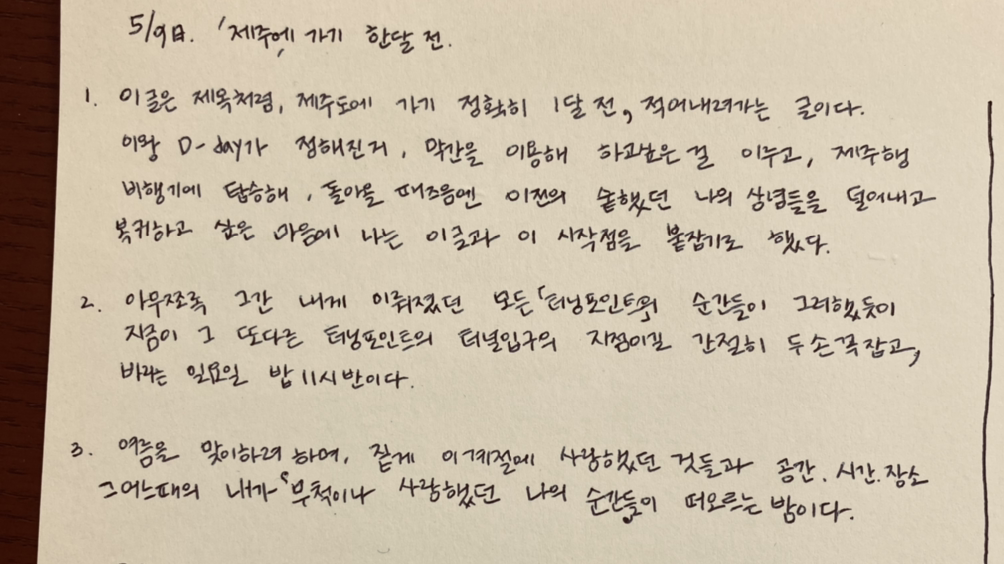 5/9日. '제주에, 가기 한달 전.
1. 이글은 제목처럼, 제주도에 가기 정확히 1달 전, 적어내려가는 글이다.
이왕 D-day가 정해진거, 막간을 이용해 하고싶은 걸 이루고, 제주행
비행기에 탑승해, 돌아올 때즈음엔 이전의 숱했던 나의 상념들을 덜어내고
복귀하고 싶은 마음에 나는 이글과 이 시작점을 붙잡기로 했다.
2. 아무쪼록 그간 내게 이뤄졌던 모든 「터닝포인트의」 순간들이 그러했듯이
지금이 그 또다른 터닝포인트의 터널입구의 지점이길 간절히 두손꼭잡고,
바라는 일요일 밤 11시반이다.
3. 여름을 맞이하려 하며, 짙게 이계절에 사랑했던 것들과 공간. 시간. 장소
그어느때의 내가 "무척이나 사랑했던 나의 순간들"이 떠오르는 밤이다.